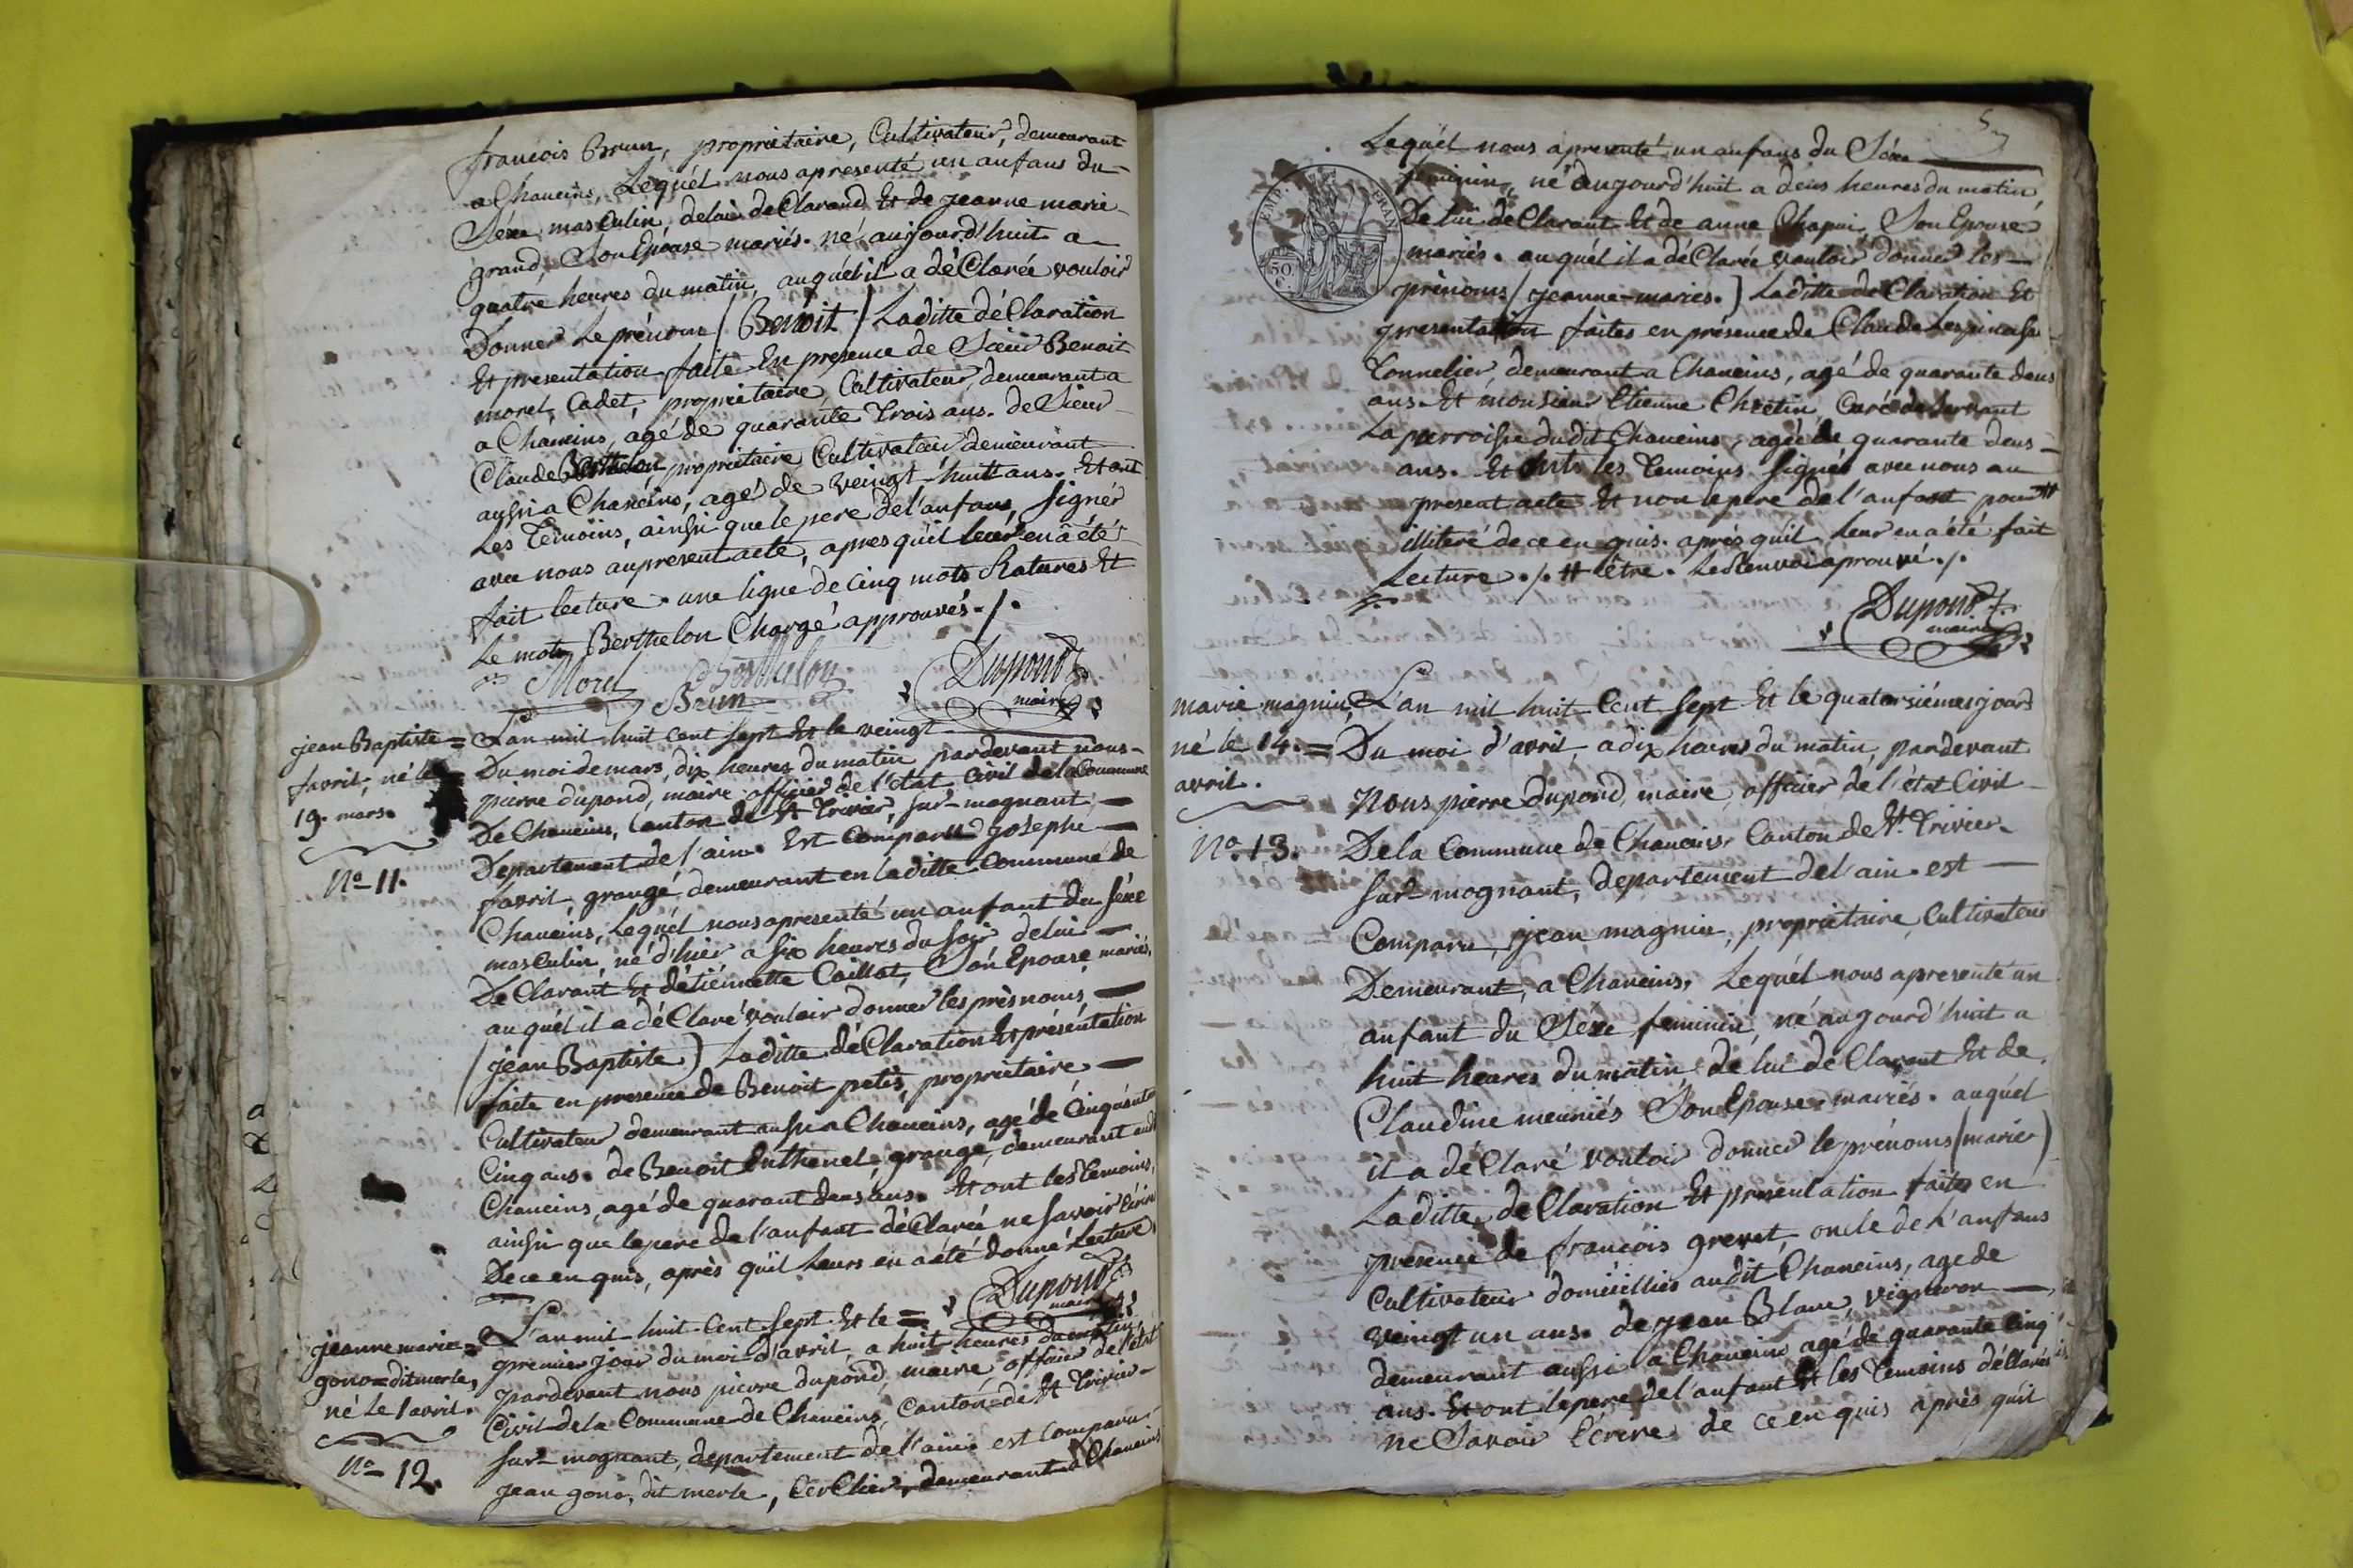 françois Brun, proprietaire, Cultivateur, demeurant
a Chaneins, Lequél nous apresenté un anfans du
Séxe masculin, delui deClarand Et de jeanne marie
grand, Son Epouse mariés. né aujourd'huit a
quatre heures du matin, auquél il a déClarée vouloir
Donner Le prénom (Benoit) Laditte déClaration
Et presentation faite En presence de Sieur Benoit
morel Cadet, proprietaire Cultivateur, demeurant a
a Chaneins, agé de quarante trois ans. de Sieur
Claude Berthelon, proprietaire Cultivateur demeurant
aussi a Chaneins, agé de veingt-huit ans. Et ont
Les Temoins, ainssi que le pere de l'anfans, Signér
avec nous au present acte, apres qu'il leur en a été
fait lecture. une ligne de Cinq mots Ratures Et
Le mots Berthelon Chargé approuvés ./.
Morel Berthelon
Brun
Dupond
maire
jean Baptiste =
favril, né le
19. mars.
No-11.
L'an mil huit cent sept Et le veingt
Du moi de mars, dix heures du matin pardevant nous
pierre dupond, maire officier de l'état Civil de la Commune
De Chaneins, Canton de St Trivier, Sur-mognant,
Departement de l'ain. Est Comparu Josephe
favril, grangé, demeurant en laditte Commune de
Chaneins, Lequél nous apresenté un anfant du Séxe
masculin, né d'hier a six heures du Soir de lui
DeClarant Et d'étiennette Caillat, Son Epouse mariés,
auquél il a déClaré vouloir donner les prènoms
(jean Baptiste) Laditte déClaration Et présentation
faite en presence de Benoit petit, proprietaire
Cultivateur demeurant aussi a Chaneins, agé de Cinquante
Cinq ans. de Benoit Duthenel grangé, demeurant audit
Chaneins, agé de quarant deus ans. Et ont les Temoins,
ainssi que le pere de l'anfant déClarée ne Savoir Ecrire
De ce en quis, après qu'il leurs en a été donné Lecture
Dupond
maire
jeanne marie =
gono = dit merle,
né Le 1 avril.
No- 12.
L'an mil huit Cent Sept Et le =
premier jour du moi d'avril, a huit heures du matin,
pardevant nous pierre dupond, maire, officier de l'état
Civil de la Commune de Chaneins, Canton de St Trivier
Sur mognant, departement de l'ain est Comparu
jean gono, dit merle, CerClier, demeurant a Chaneins
5
EMP. FRAN
50 C.
Lequél nous apresenté un anfans du Séxe
feminin, né aujourd'huit a deus heures du matin,
De lui deClarant Et de anne Chapui, Son Epouse
mariés. auquél il a déClarée vouloir donner les
prènoms (jeanne-maries.) Laditte deClaration Et
presentation faites en présence de Claude Lespinasse
Tonnelier, demeurant a Chaneins, agé de quarante deus
ans. Et monsieur Etienne Chretin, Curé deservant
La parroisse dudit Chaneins, agée de quarante deus
ans. Et onts les Temoins Signés avec nous au
present acte Et non le pere de l'anfant pour #
illiteré de ce en quis. après qu'il leur en a été fait
Lecture ./. # être. Led Renvoi aprouvé ./.
Dupond
maire
marie magnin,
né le 14. =
avril.
No. 13.
L'an mil huit Cent Sept Et le quatorsiémes jours
Du moi d'avril, a dix heures du matin, pardevant
Nous pierre dupond, maire, officier de l'état Civil
De la Commune de Chaneins, Canton de St. Trivier
Sur-mognant, departement de l'ain. est
Comparu, jean magnin, proprietaire Cultivateur
Demeurant, a Chaneins, Lequél nous apresenté un
anfant du Séxe feminin, né aujourd'huit a
huit heures du matin de lui deClarant Et de
Claudine meuniés Son Epouse mariés. auquél
il a déClaré vouloir donner le prénoms (maries)
Laditte deClaration Et presentation faites en
présence de françois grevet, oncle de L'anfans
Cultivateur domicilliés audit Chaneins, age de
Veingt un ans. de jean Blanc, vigneron
demeurant aussi a Chaneins agé de quarante Cinq
ans. Et ont le pere de l'anfant Et les Temoins déClarés
ne Savoir Ecrire de ce en quis après qu'il